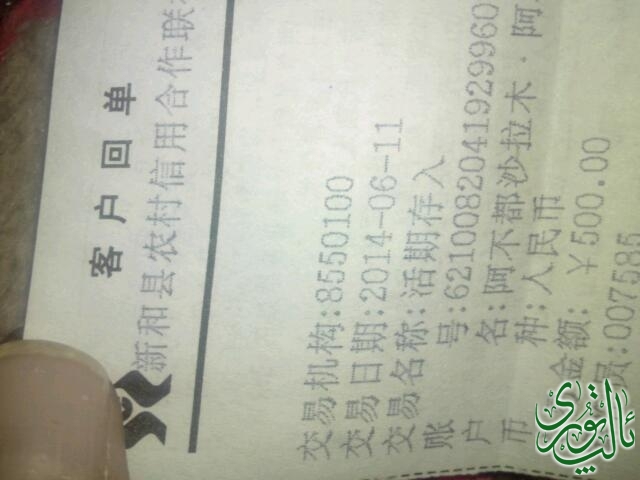 客户回单
新和县农村信用合作联
交易机构:8550100
交易日期:2014-06-11
交易名称:活期存入
账号:6210082041929960
户名:阿不都沙拉木·阿
币种:人民币
金额:¥500.00
员:007585